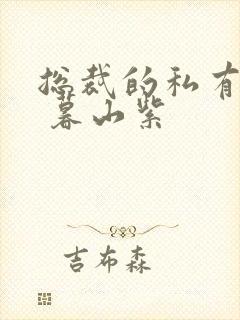 总裁的私有
暮山紫
吉布森